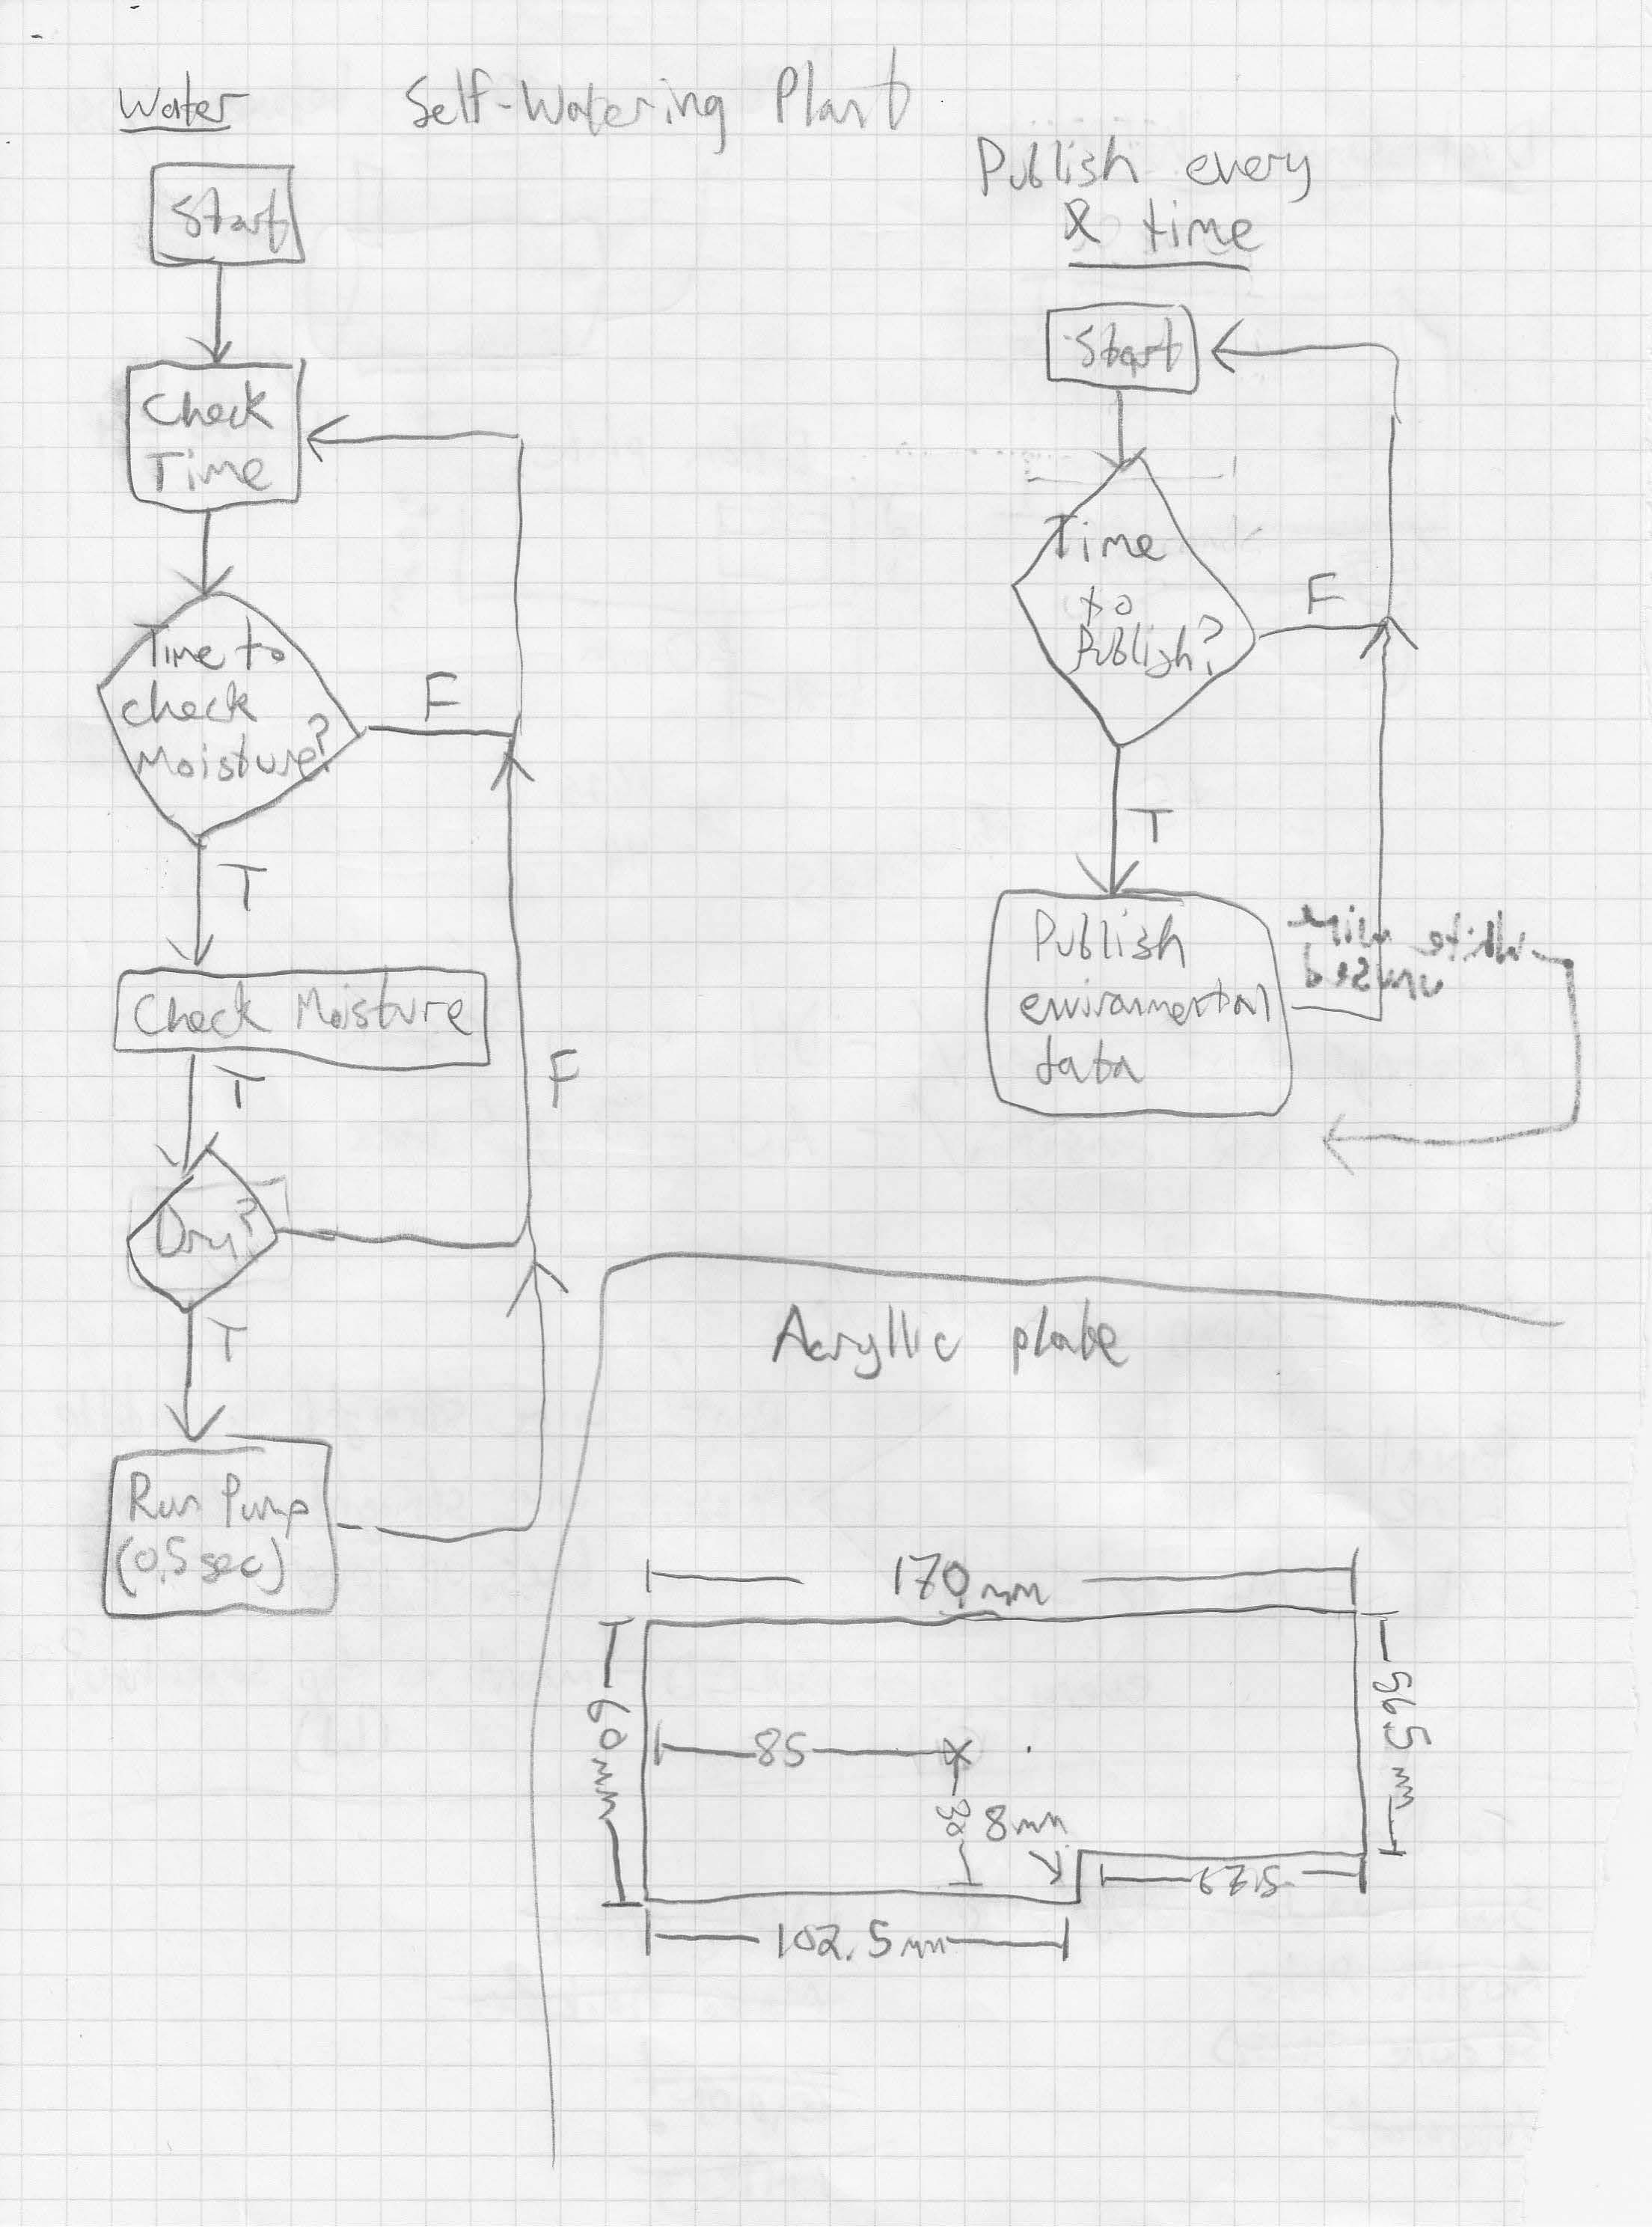 Water
Self-Watering Plant
Start
Check
Time
Time to
check
Moisture?
F
T
Check Moisture
T
F
Dry?
T
Run Pump
(0.5 sec)
Publish every
X time
Start
Time
to
Publish?
F
T
Publish
environmental
data
white wire
unused
Acryllic plate
170mm
60mm
565mm
85
30
8mm
67.5
102.5mm